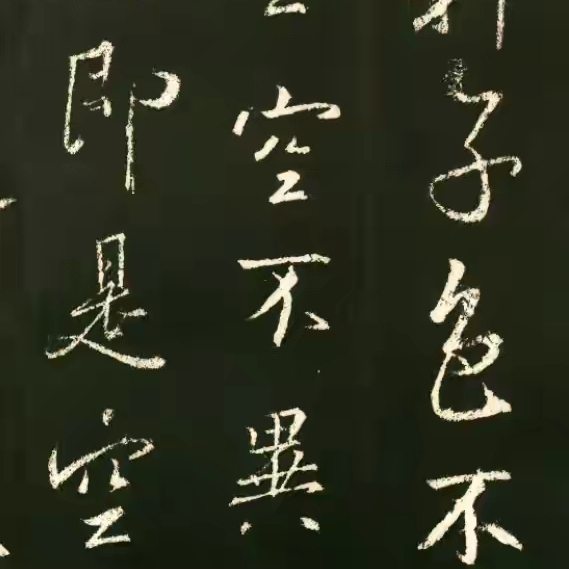 子色不
空不異
即是空